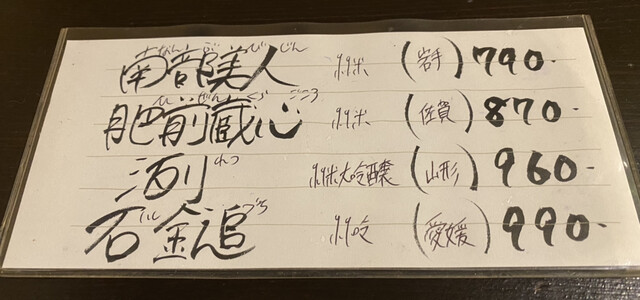 南部美人 なんぶびじん 純米 (岩手) 790.
肥前蔵心 ひぜんくらごころ 純米 (佐賀) 870.
洌 れつ 純米大吟醸 (山形) 960.
石鎚 づち 純吟 (愛媛) 990.